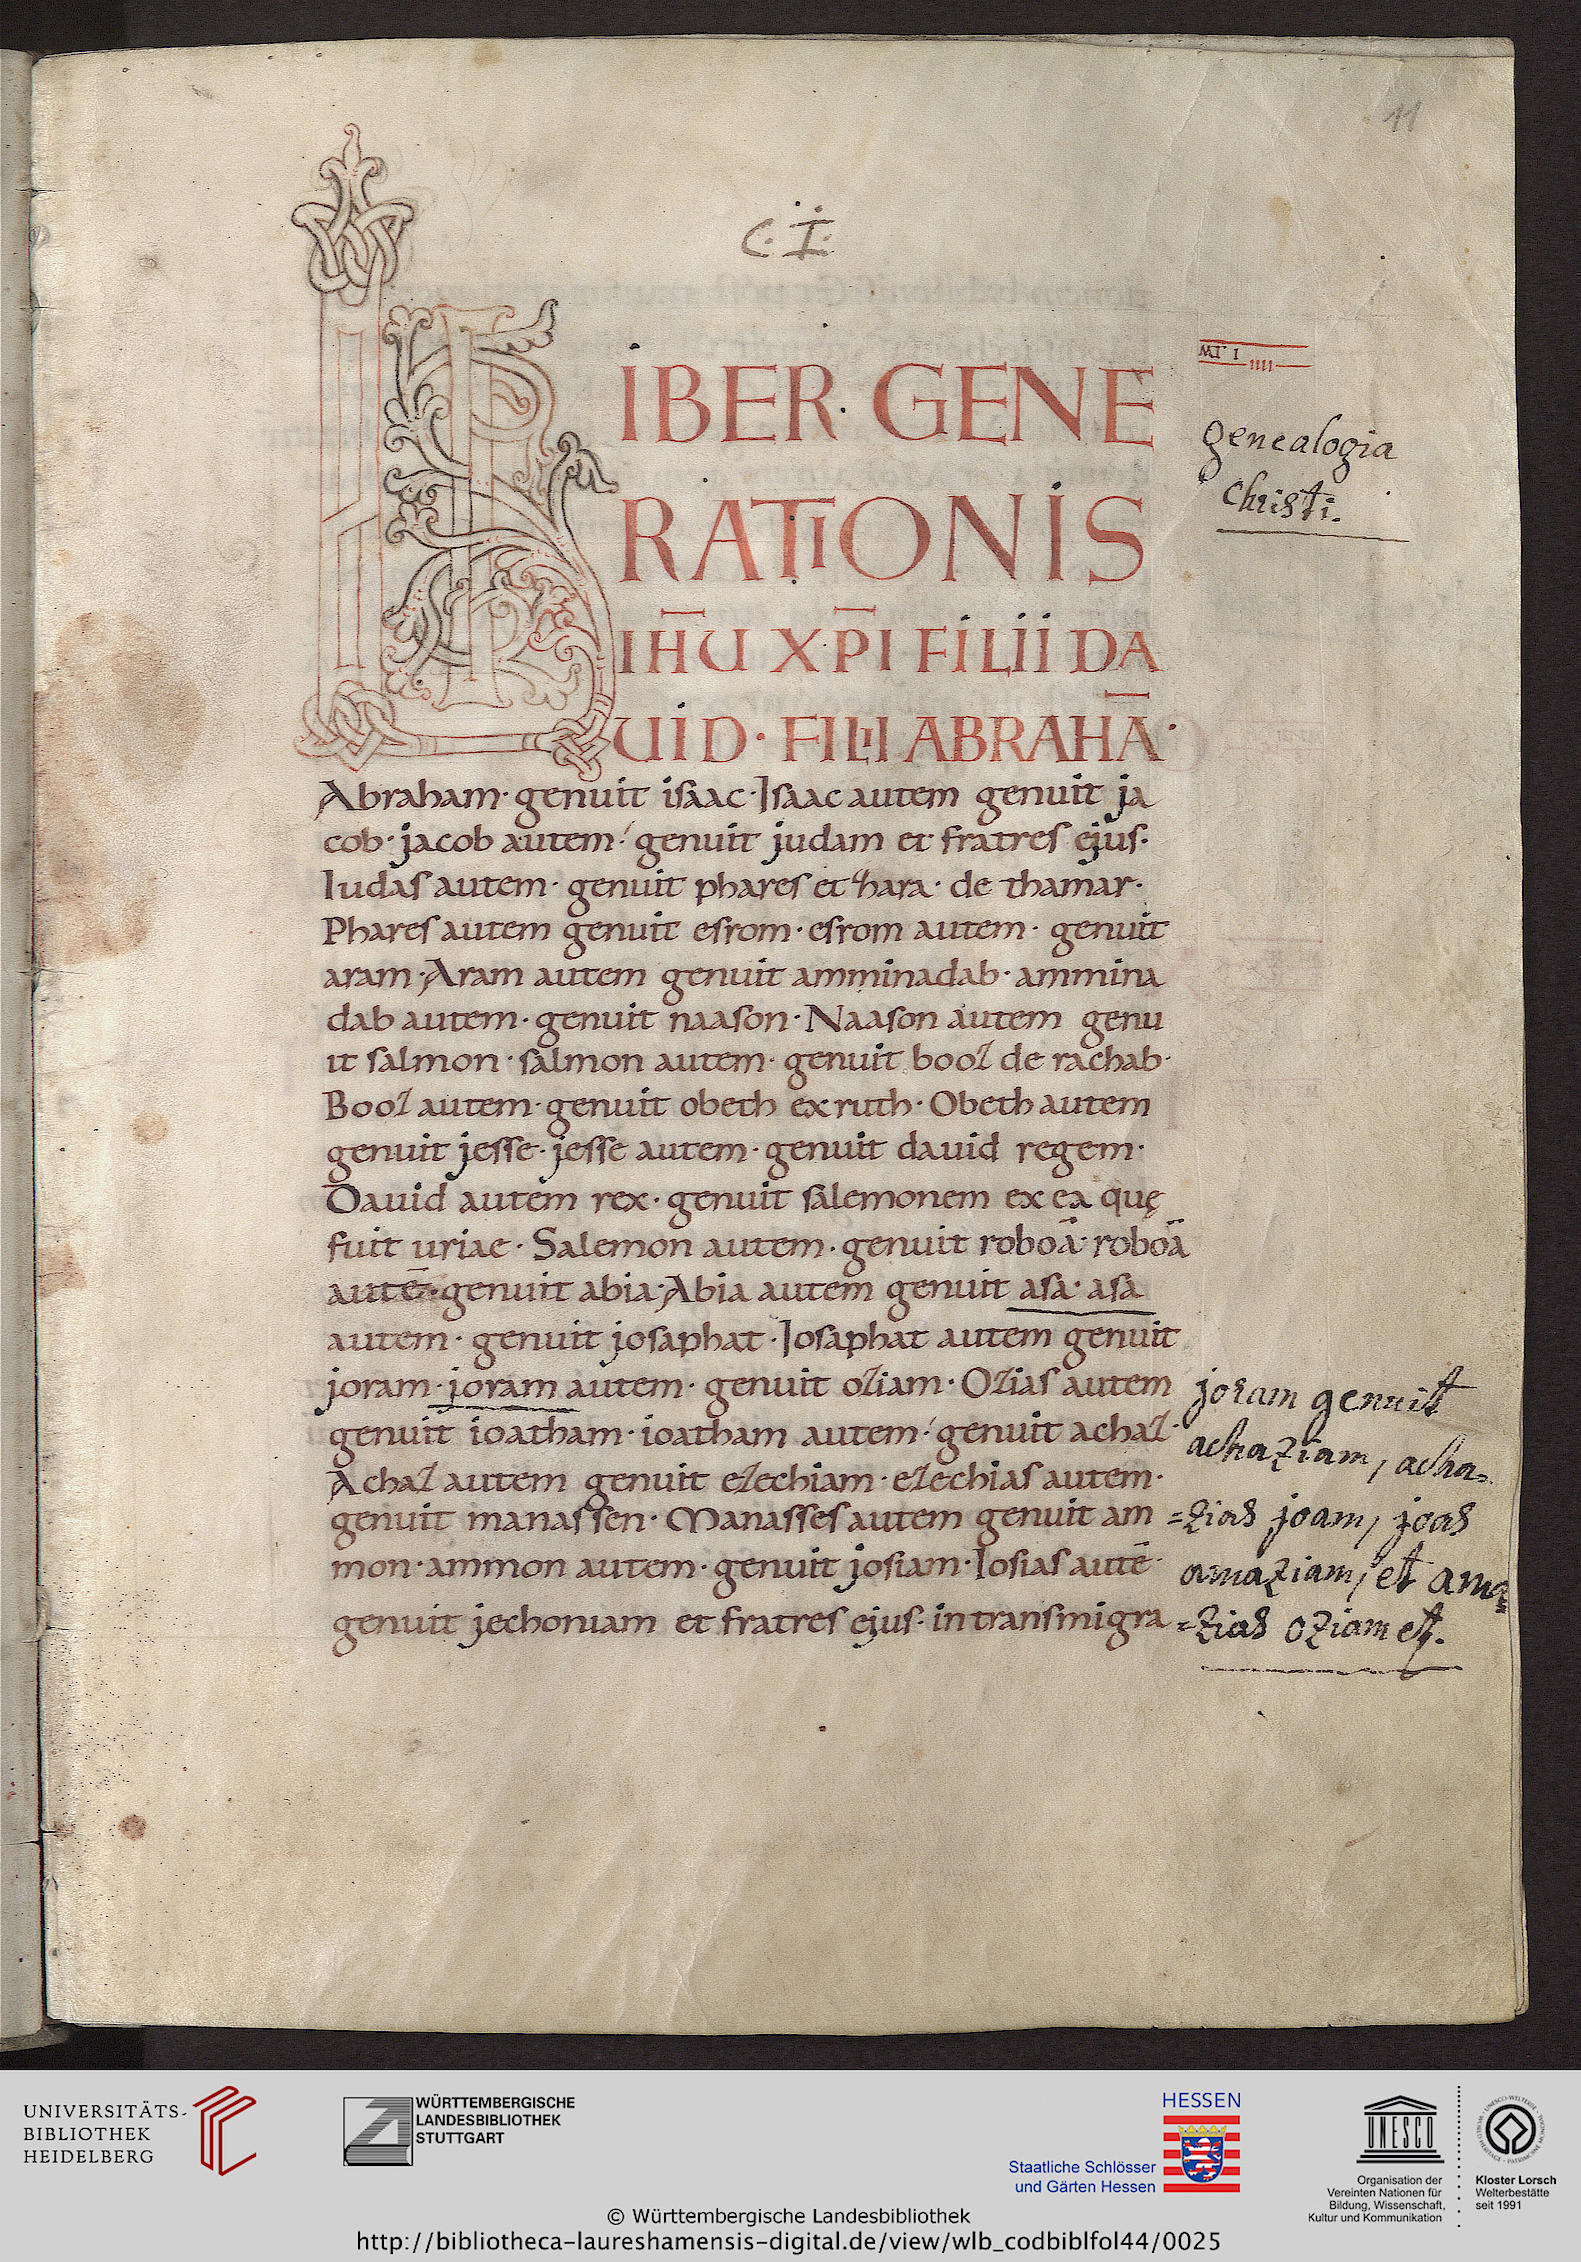 11
C. I.
LIBER. GENE
RATIONIS
IHU XPI FILII DA
UID · FILII ABRAHĀ ·
MT I
IIII
genealogia
Christi.
Abraham · genuit isaac · Isaac autem genuit ja
cob · jacob autem · genuit judam et fratres ejus ·
Iudas autem · genuit phares et zhara · de thamar ·
Phares autem genuit esrom · esrom autem · genuit
aram · Aram autem genuit amminadab · ammina
dab autem · genuit naason · Naason autem genu
it salmon · salmon autem · genuit booz de rachab ·
Booz autem · genuit obeth ex ruth · Obeth autem
genuit jesse · jesse autem · genuit dauid regem ·
Dauid autem rex · genuit salemonem ex ea quę
fuit uriae · Salemon autem · genuit roboā · roboā
autē · genuit abia · Abia autem genuit asa · asa
autem · genuit josaphat · Josaphat autem genuit
joram · joram autem · genuit oziam · Ozias autem
genuit ioatham · ioatham autem · genuit achaz ·
Achaz autem genuit ezechiam · ezechias autem ·
genuit manassen · Manasses autem genuit am
mon · ammon autem · genuit josiam · Iosias autē ·
genuit jechoniam et fratres ejus · in transmigra
joram genuit
achaziam, acha=
=zias joam, joas
amaziam, et ama
=zias oziam et.
UNIVERSITÄTS-
BIBLIOTHEK
HEIDELBERG
WÜRTTEMBERGISCHE
LANDESBIBLIOTHEK
STUTTGART
HESSEN
Staatliche Schlösser
und Gärten Hessen
UNESCO
Organisation der
Vereinten Nationen für
Bildung, Wissenschaft,
Kultur und Kommunikation
Kloster Lorsch
Welterbestätte
seit 1991
© Württembergische Landesbibliothek
http://bibliotheca-laureshamensis-digital.de/view/wlb_codbiblfol44/0025